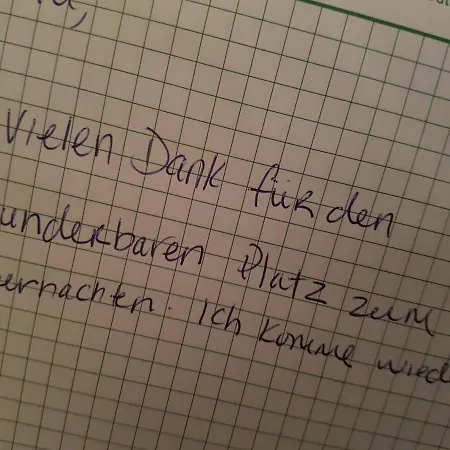 Vielen Dank für den
underbaren Platz zum
ernachten. Ich komme wied